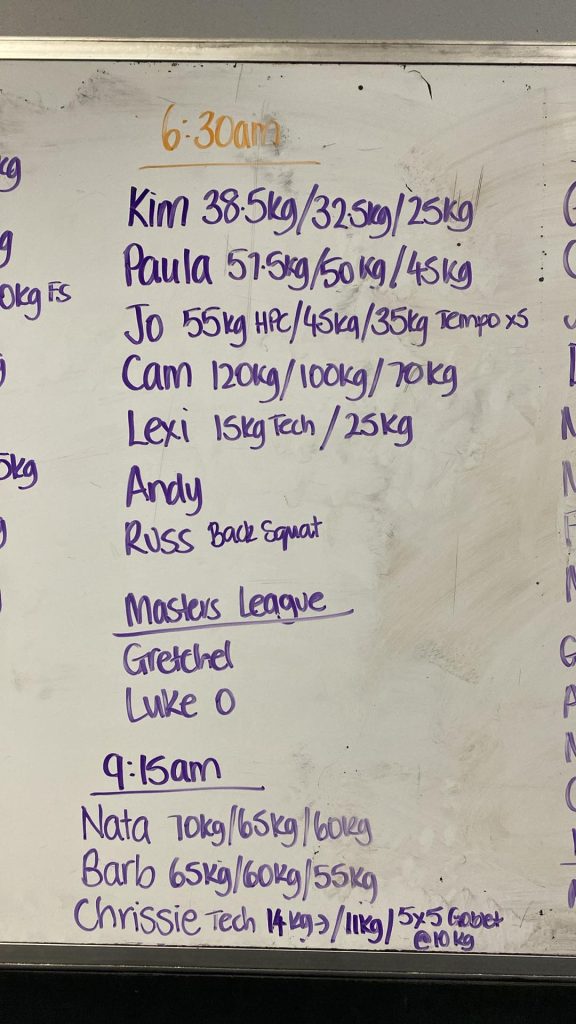 6:30am
Kim 38.5kg/32.5kg/25kg
Paula 57.5kg/50kg/45kg
Jo 55kg HPC/45kg/35kg Tempo x5
Cam 120kg/100kg/70kg
Lexi 15kg Tech / 25kg
Andy
Russ Back Squat
Masters League
Gretchel
Luke O
9:15am
Nata 70kg/65kg/60kg
Barb 65kg/60kg/55kg
Chrissie Tech 14kg→/11kg/5x5 Gobet
@10kg
kg
g
0kg FS
g
5kg
g